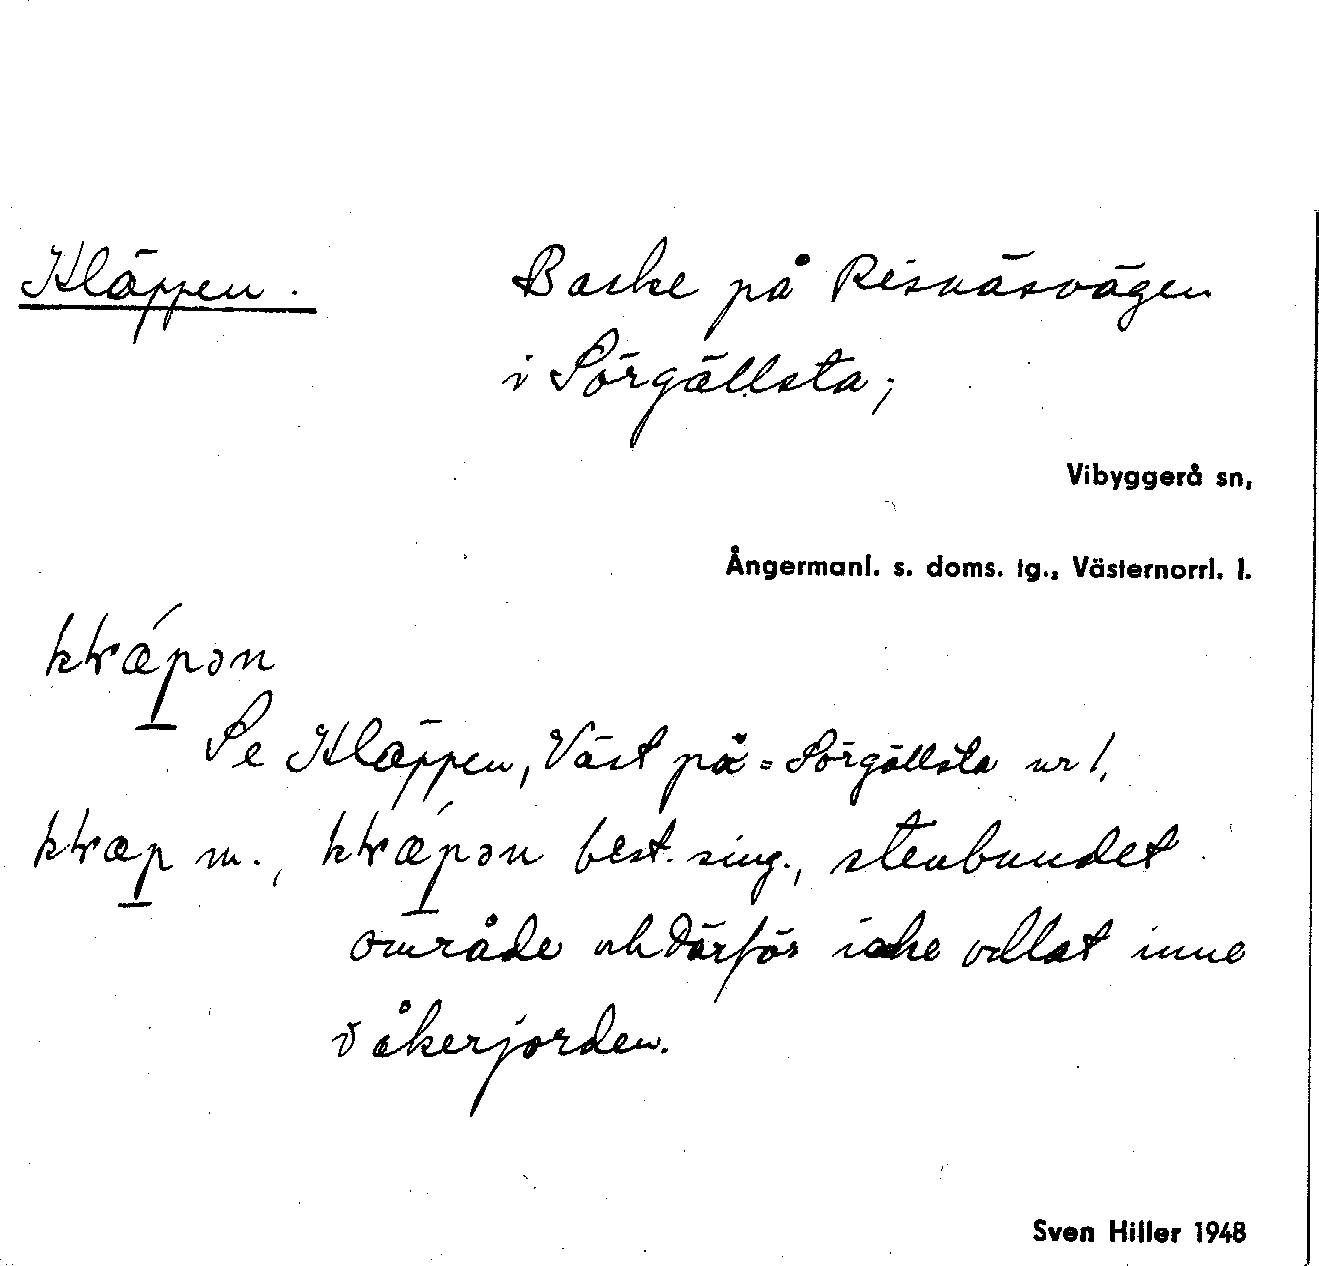 Kläppen. Backe på Risnäsvägen
i Sörgällsta;
Vibyggerå sn,
Ångermanl. s. doms. tg., Västernorrl. l.
Se Kläppen, Väst på = Sörgällsta nr 1,
m., best. sing., stenbundet
område och därför icke odlat inne
i åkerjorden.
Sven Hiller 1948